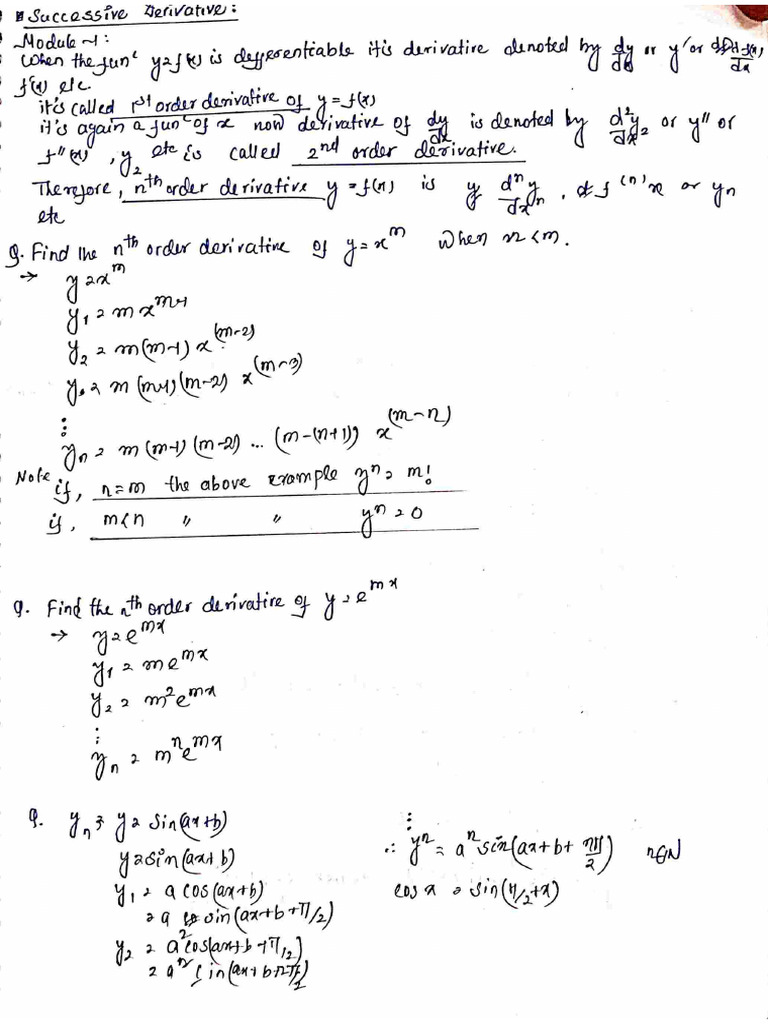 Successive Derivative:
Module-1:
When the funᶜ y=f(x) is defferentiable it's derivative denoted by dy/dx or y' or d f(x)/dx,
f'(x) etc.
it's called 1st order derivative of y=f(x)
it's again a funᶜ of x now derivative of dy/dx is denoted by d²y/dx² or y'' or
f''(x), y₂ etc is called 2nd order derivative.
Therefore, nth order derivative y=f(x) is dⁿy/dxⁿ, f⁽ⁿ⁾x or yn
etc
Q. Find the nth order derivative of y=x^m when n<m.
→ y=x^m
y₁ = m x^m-1
y₂ = m(m-1) x^(m-2)
y₃ = m(m-1)(m-2) x^(m-3)
⋮
yn = m(m-1)(m-2) ... (m-(n+1)) x^(m-n)
Note if, n=m the above example yⁿ = m!
if, m<n " " yⁿ = 0
Q. Find the nth order derivative of y=e^mx
→ y=e^mx
y₁ = me^mx
y₂ = m²e^mx
⋮
yn = mⁿe^mx
Q. yn ; y = sin(ax+b)
y=sin(ax+b)
y₁ = a cos(ax+b)
= a sin(ax+b+π/2)
y₂ = a²cos(ax+b+π/2)
= a² sin(ax+b+2π/2)
⋮
∴ yⁿ = aⁿ sin(ax+b+nπ/2) n∈N
cos x = sin(π/2+x)